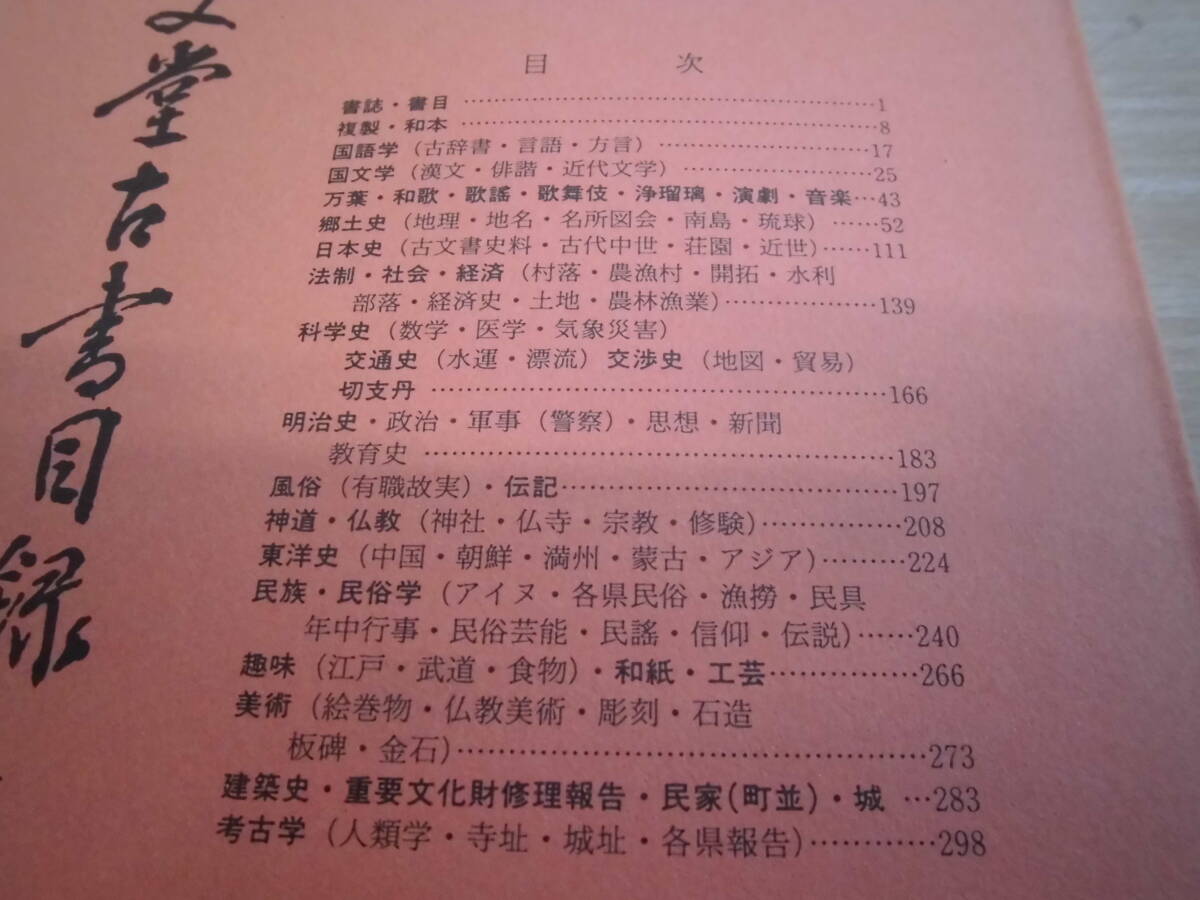 文堂古書目録
目次
書誌・書目…1
複製・和本…8
国語学（古辞書・言語・方言）…17
国文学（漢文・俳諧・近代文学）…25
万葉・和歌・歌謡・歌舞伎・浄瑠璃・演劇・音楽…43
郷土史（地理・地名・名所図会・南島・琉球）…52
日本史（古文書史料・古代中世・荘園・近世）…111
法制・社会・経済（村落・農漁村・開拓・水利
部落・経済史・土地・農林漁業）…139
科学史（数学・医学・気象災害）
交通史（水運・漂流）交渉史（地図・貿易）
切支丹…166
明治史・政治・軍事（警察）・思想・新聞
教育史…183
風俗（有職故実）・伝記…197
神道・仏教（神社・仏寺・宗教・修験）…208
東洋史（中国・朝鮮・満州・蒙古・アジア）…224
民族・民俗学（アイヌ・各県民俗・漁撈・民具
年中行事・民俗芸能・民謡・信仰・伝説）…240
趣味（江戸・武道・食物）・和紙・工芸…266
美術（絵巻物・仏教美術・彫刻・石造
板碑・金石）…273
建築史・重要文化財修理報告・民家(町並)・城…283
考古学（人類学・寺址・城址・各県報告）…298